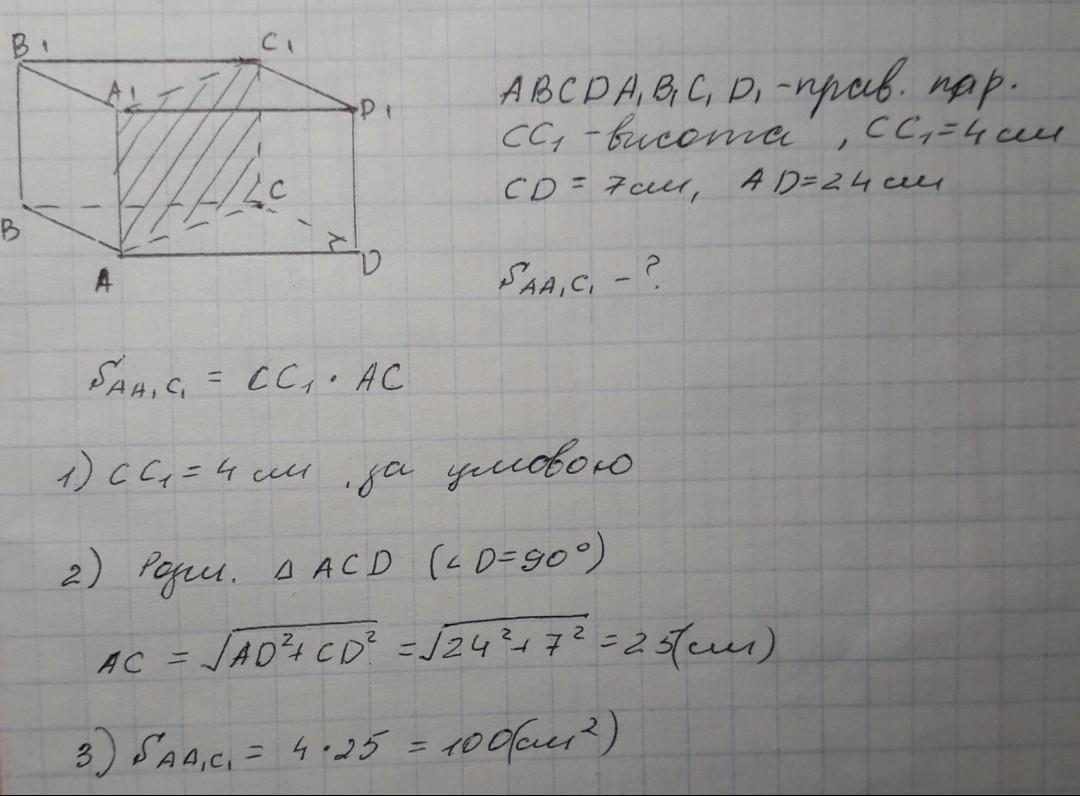 B₁
C₁
A₁
D₁
B
C
A
D
ABCDA₁B₁C₁D₁ - прав. пар.
CC₁ - висота , CC₁ = 4 см
CD = 7 см, AD = 24 см
S_AA₁C₁ - ?
S_AA₁C₁ = CC₁ · AC
1) CC₁ = 4 см , за умовою
2) Розгл. Δ ACD (∠D = 90°)
AC = √(AD² + CD²) = √(24² + 7²) = 25 (см)
3) S_AA₁C₁ = 4 · 25 = 100 (см²)